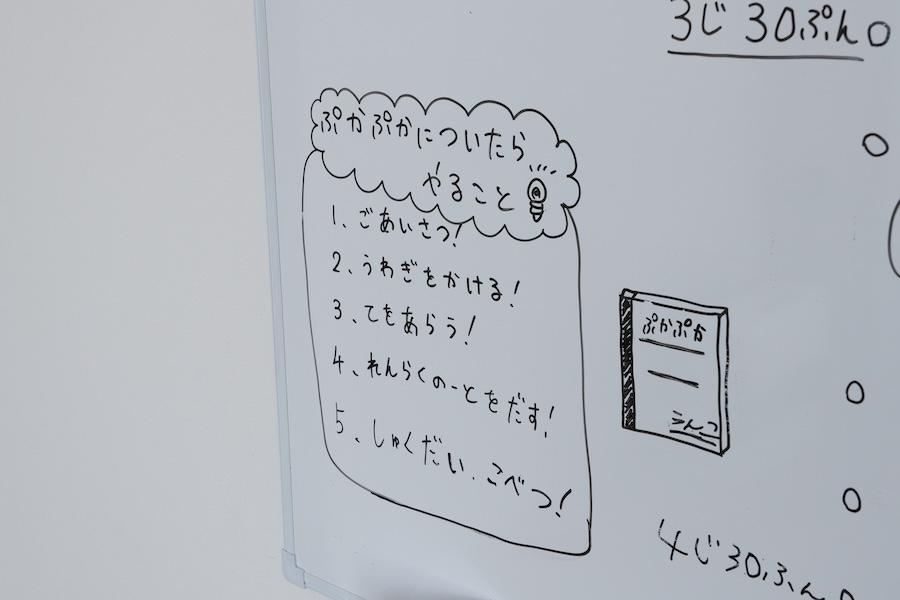 3じ30ぷん
ぷかぷかについたら
やること
1、ごあいさつ!
2、うわぎをかける!
3、てをあらう!
4、れんらくのーとをだす!
5、しゅくだい、こべつ!
ぷかぷか
うんこ
4じ30ふん